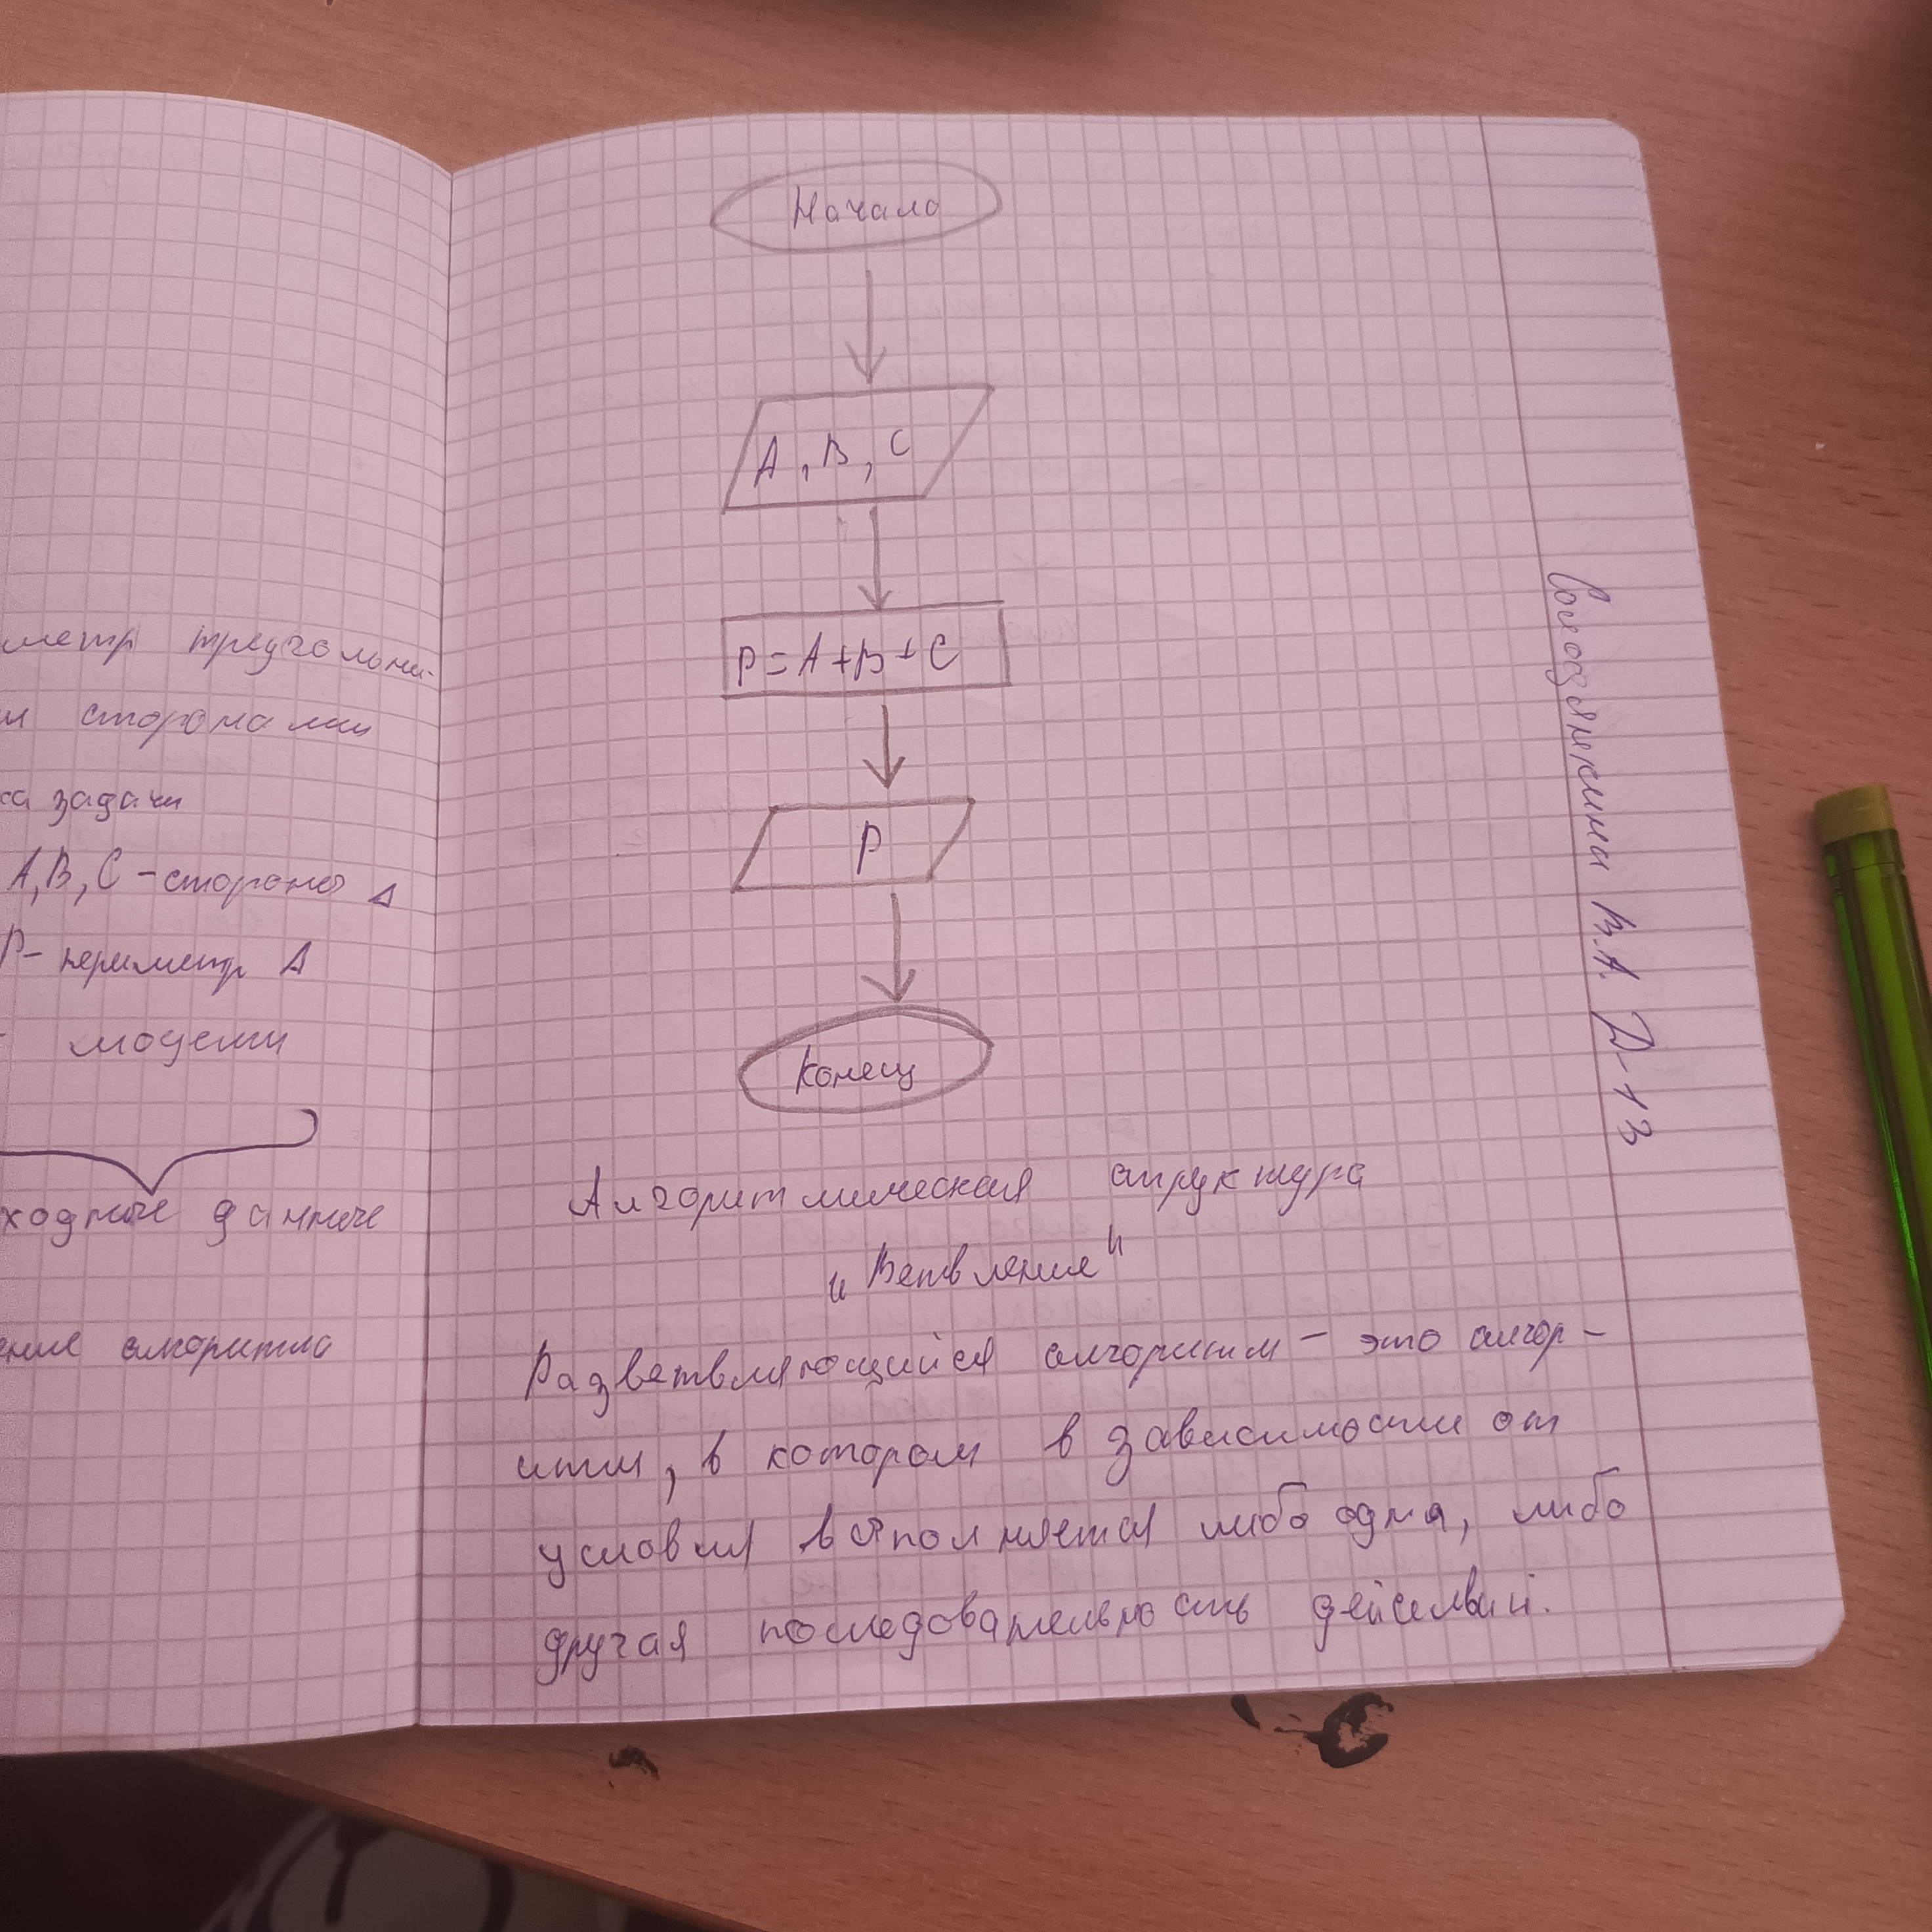 метр треугольни-
и сторонами
ка задачи
A, B, C - стороны Δ
P - периметр Δ
модели
ходные данные
ение алгоритма
Начало
A, B, C
P = A + B + C
P
Конец
Алгоритмическая структура
"Ветвление"
Разветвляющийся алгоритм - это алгор-
итм, в котором в зависимости от
условия выполняется либо одна, либо
другая последовательность действий.
В.А. Д-13